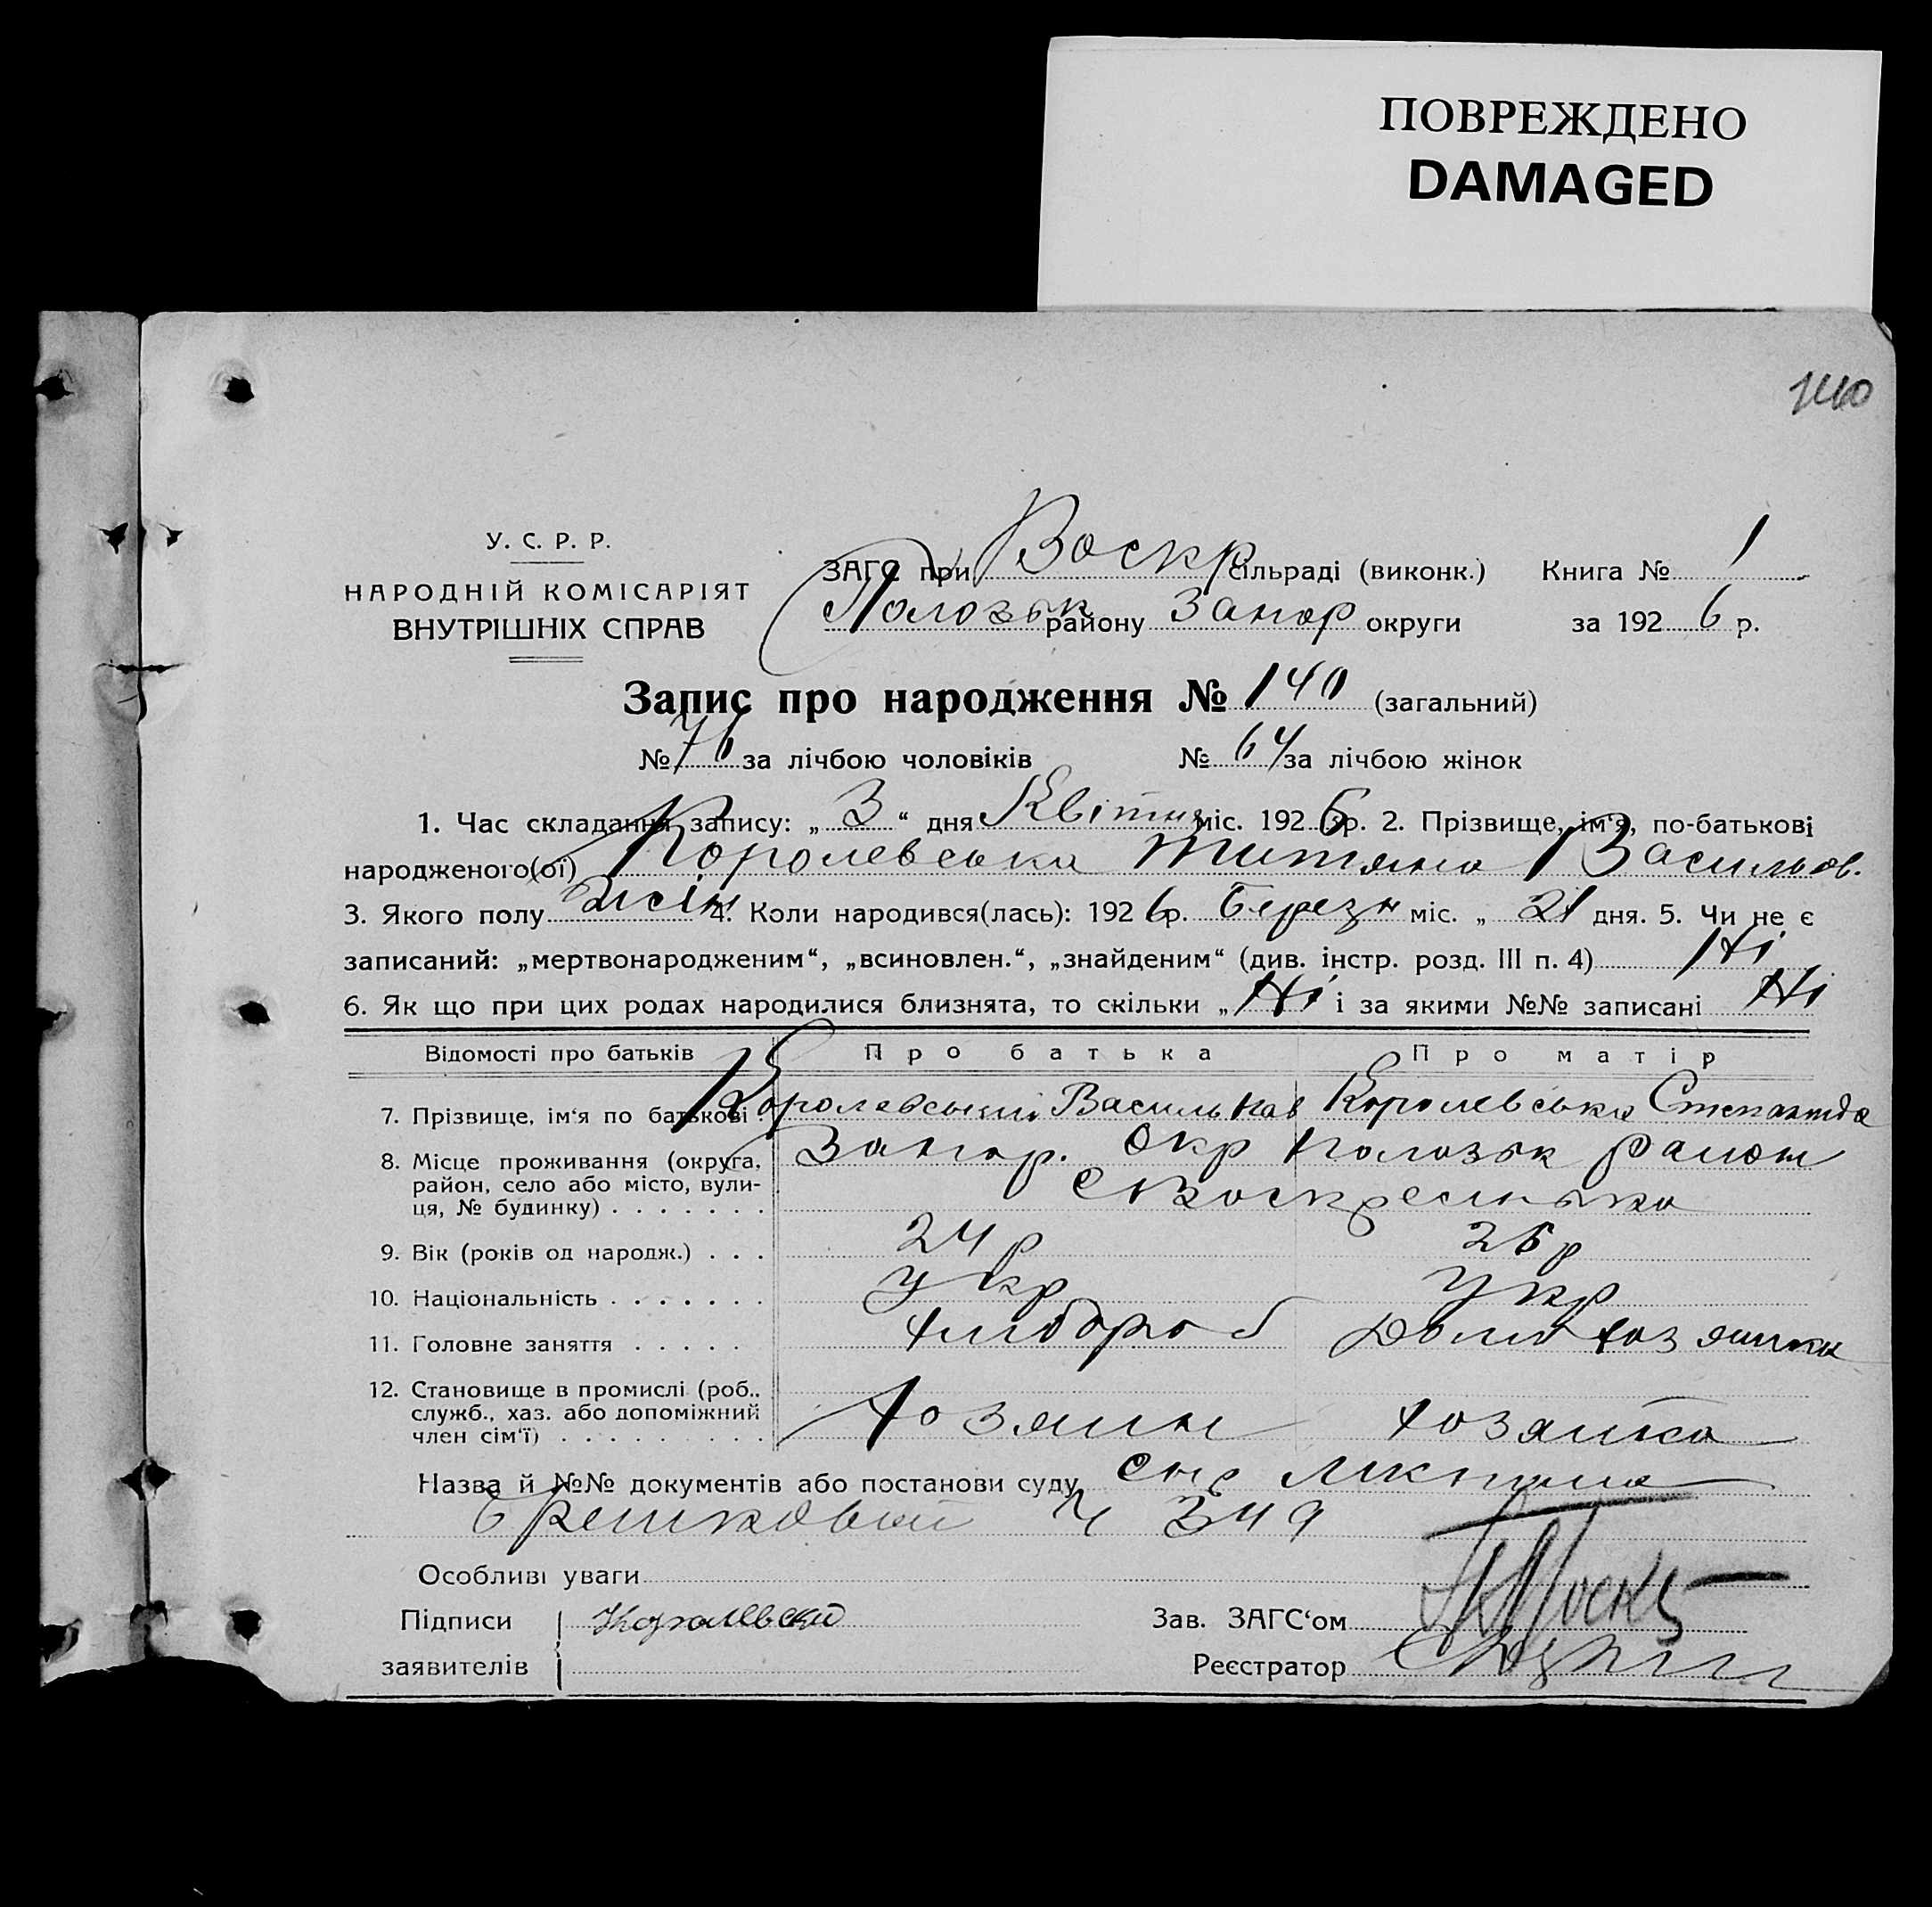 ПОВРЕЖДЕНО
DAMAGED
140
У. С. Р. Р.
НАРОДНІЙ КОМІСАРІЯТ
ВНУТРІШНІХ СПРАВ
ЗАГС при Воскр сільраді (виконк.) Книга № 1
Пологськ району Запор округи за 1926 р.
Запис про народження № 140 (загальний)
№ 76 за лічбою чоловіків № 64 за лічбою жінок
1. Час складання запису: „ 3 “ дня Квітня міс. 1926 р. 2. Прізвище, ім‘я, по-батькові
народженого(ої) Королевська Титяна Васильов.
3. Якого полу жін 4. Коли народився(лась): 1926 р. Березн міс. „ 21 дня. 5. Чи не є
записаний: „мертвонародженим“, „всиновлен.“, „знайденим“ (див. інстр. розд. III п. 4) Ні
6. Як що при цих родах народилися близнята, то скільки „ Ні і за якими №№ записані Ні
Відомості про батьків Про батька Про матір
7. Прізвище, ім‘я по батькові . Королевський Василь Королевська Степанида
8. Місце проживання (округа, Запор. Окр Пологськ район
район, село або місто, вули- с Воскресенька
ця, № будинку) . . . . . . .
9. Вік (років од народж.) . . . 24 р 26 р
10. Національність . . . . . . . Укр Укр
11. Головне заняття . . . . . хлибороб Домо хозяшка
12. Становище в промислі (роб.,
служб., хаз. або допоміжний хозяин хозяйка
член сім‘ї) . . . . . . . . .
Назва й №№ документів або постанови суду
349
Особливі уваги
Підписи Королевский Зав. ЗАГС‘ом
заявителів Реєстратор